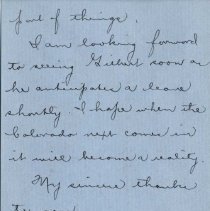 of things.
I am looking forward
to seeing Gilbert soon as
he anticipates a leave
shortly. I hope when the
Colorado next comes in
it will become a reality.
My sincere thanks